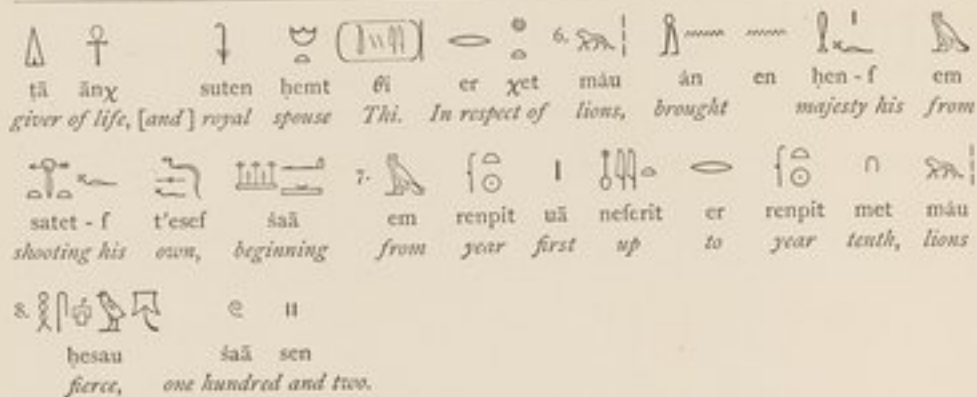 6.
ṭā ānχ suten ḥemt θi er χet máu án en ḥen - f em
giver of life, [and] royal spouse Thi. In respect of lions, brought majesty his from
7.
satet - f t'esef śaā em renpit uā neferit er renpit met máu
shooting his own, beginning from year first up to year tenth, lions
8.
ḥesau śaā sen
fierce, one hundred and two.